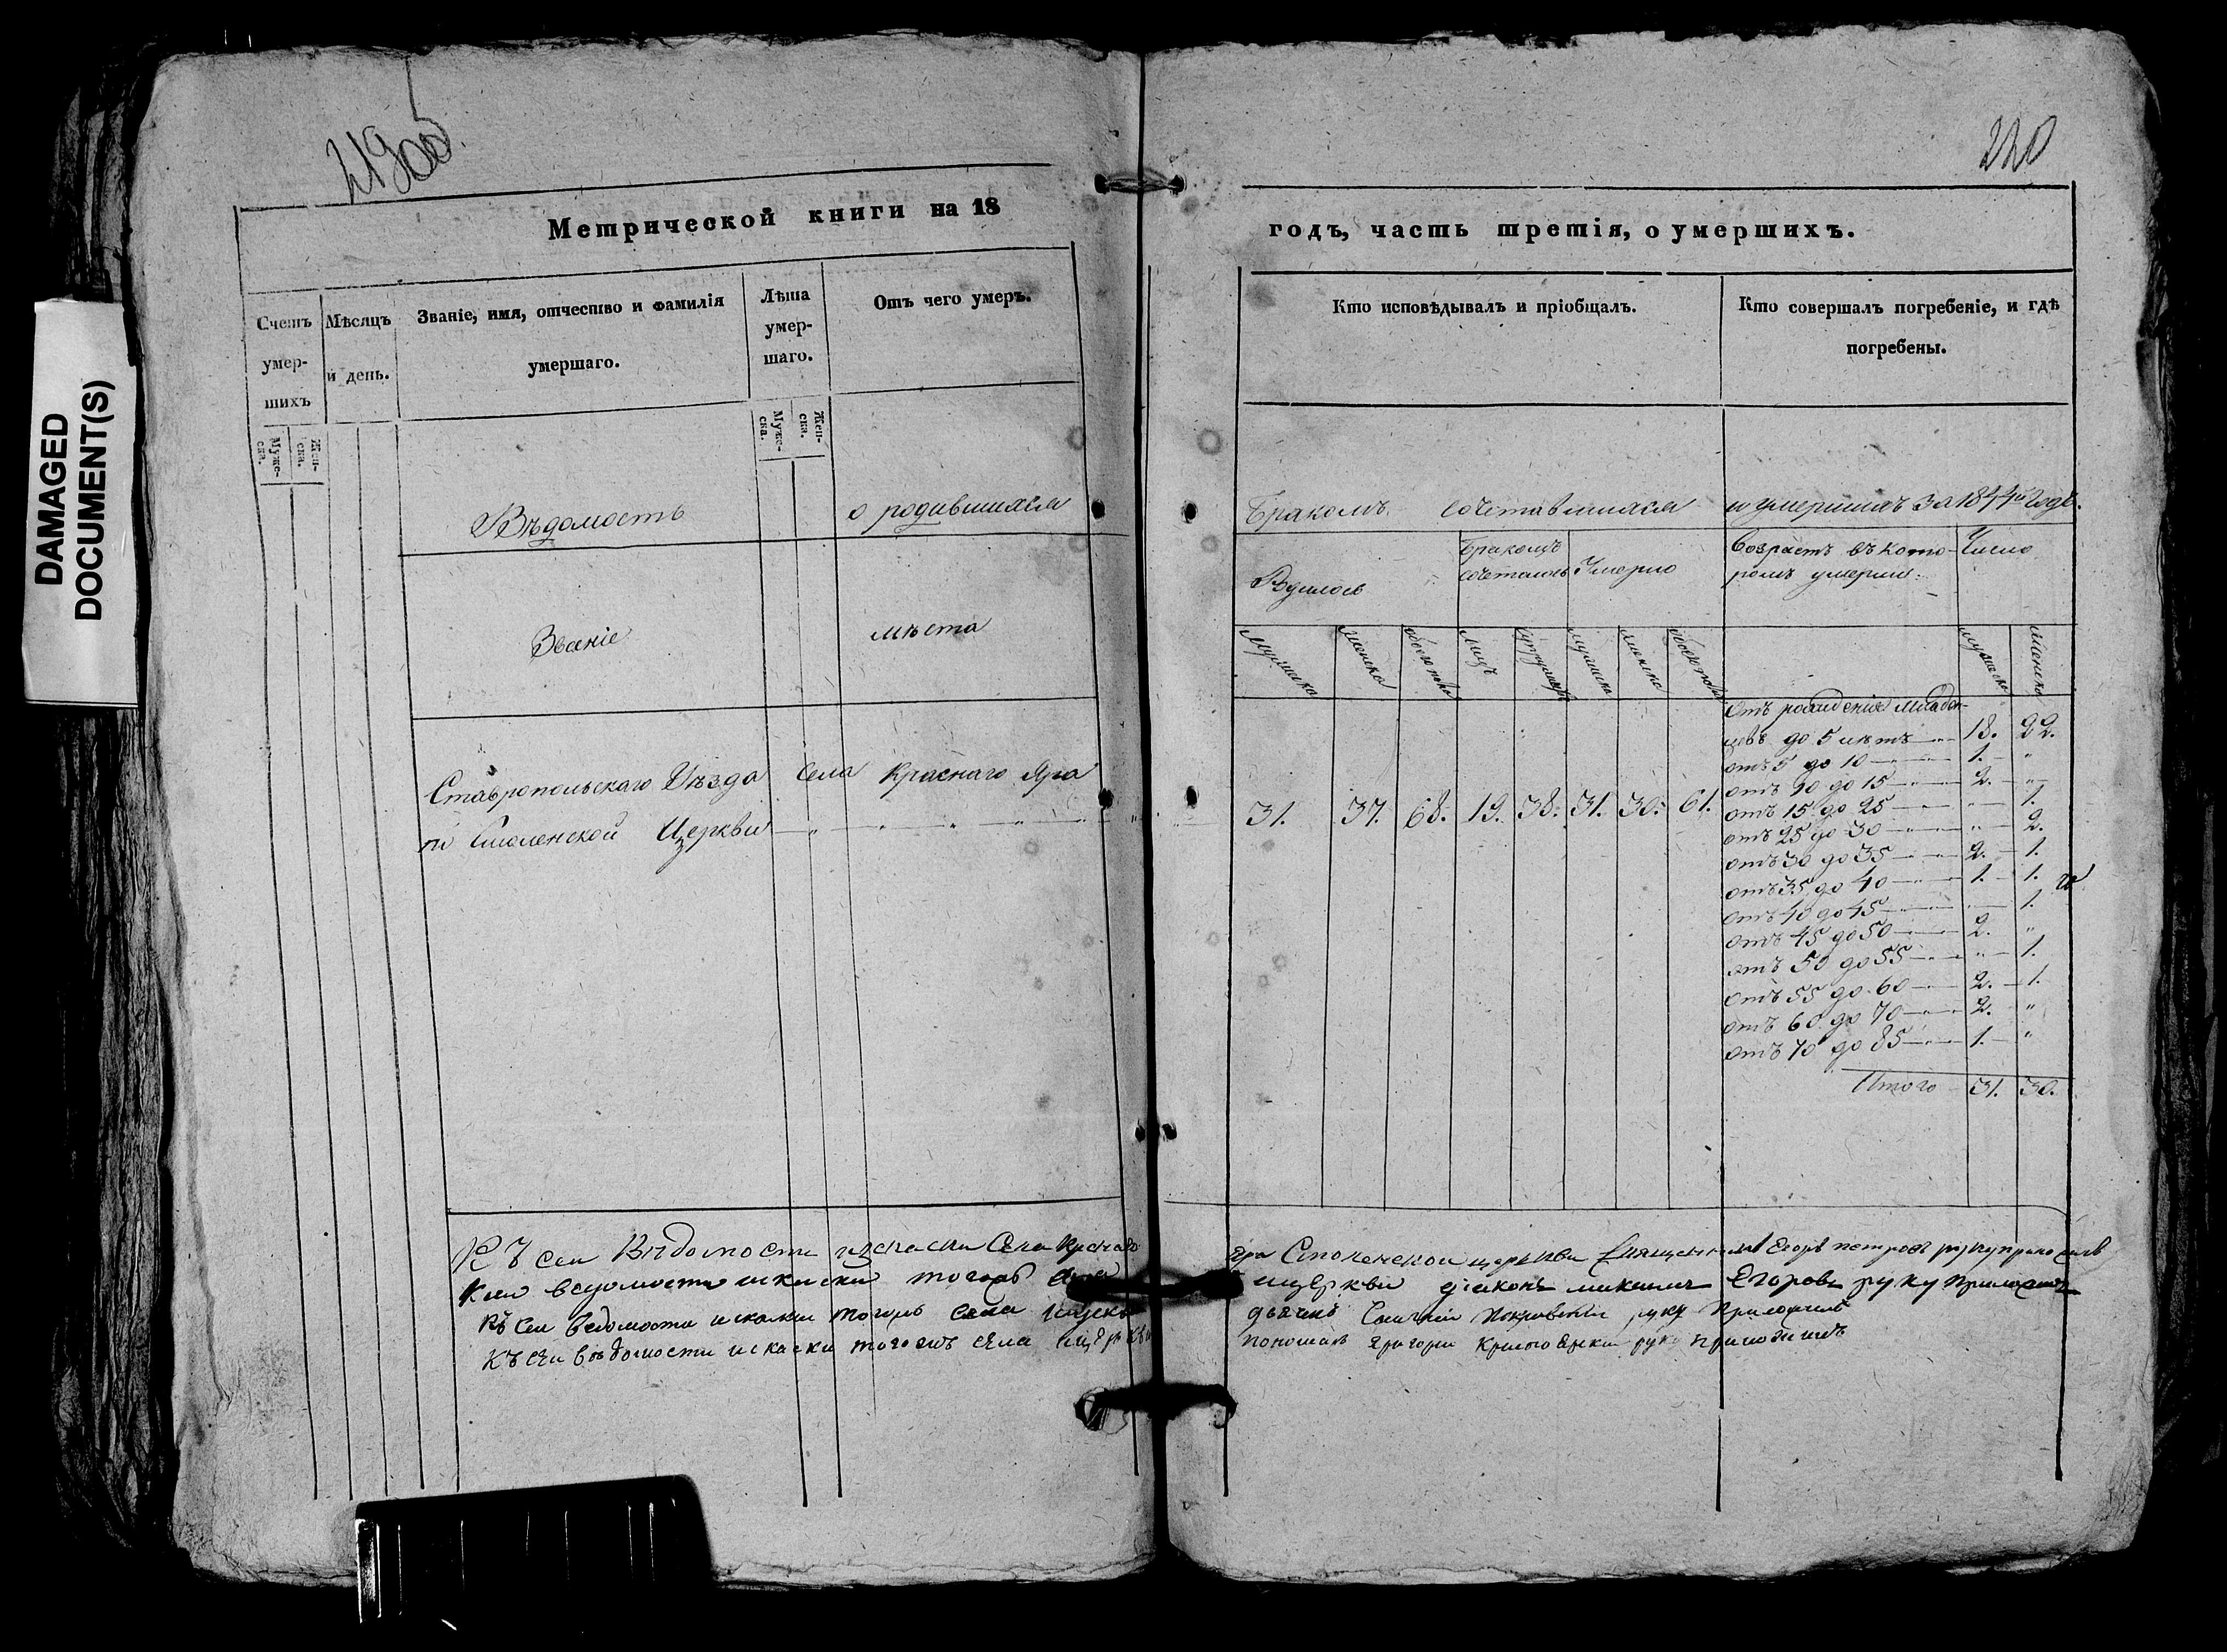 DAMAGED
DOCUMENT(S)
219 об
Метрической книги на 18
Счетъ умер-шихъ
Мѣсяцъ и день.
Званіе, имя, отчество и фамилія
умершаго.
Лѣта умер-шаго.
Отъ чего умеръ.
Муже-ска.
Жен-ска.
Муже-ска.
Жен-ска.
Вѣдомость о родившихся
Званіе мѣста
Ставропольскаго Уѣзда села Краснаго Яра
Смоленской Церкви
Къ сей Вѣдомости Села
ведомости того Яра
Къ сей ведомости тогожъ села
Къ сей ведомости тогожъ села
220
годъ, часть третія, о умершихъ.
Кто исповѣдывалъ и пріобщалъ.
Кто совершалъ погребеніе, и гдѣ
погребены.
Бракомъ сочетавшихся и умершихъ за 1844й годъ.
Бракомъ Возрастъ въ кото- Число
Умерло ромъ умерли:
Мужеска Женска обоего пола лицъ мужеска женска обоего пола мужеска женска
Отъ рожденія младен-
цевъ до 5 лѣтъ 18. 22.
отъ 5 до 10 1. "
отъ 10 до 15 2. "
31. 37. 68. 19. 38. 31. 30. 61. отъ 15 до 25 " 1.
отъ 25 до 30 " 2.
отъ 30 до 35 2. 1.
отъ 35 до 40 1. 1.
отъ 40 до 45 " 1.
отъ 45 до 50 2. "
отъ 50 до 55 " 1.
отъ 55 до 60 2. 1.
отъ 60 до 70 2. "
отъ 70 до 85 1. "
Итого 31. 30.
Яра Смоленской церкви Священникъ Егоръ петровъ руку приложилъ
церкви діаконъ Егоровъ руку приложилъ
дьячекъ руку приложилъ
пономарь григори руку приложилъ